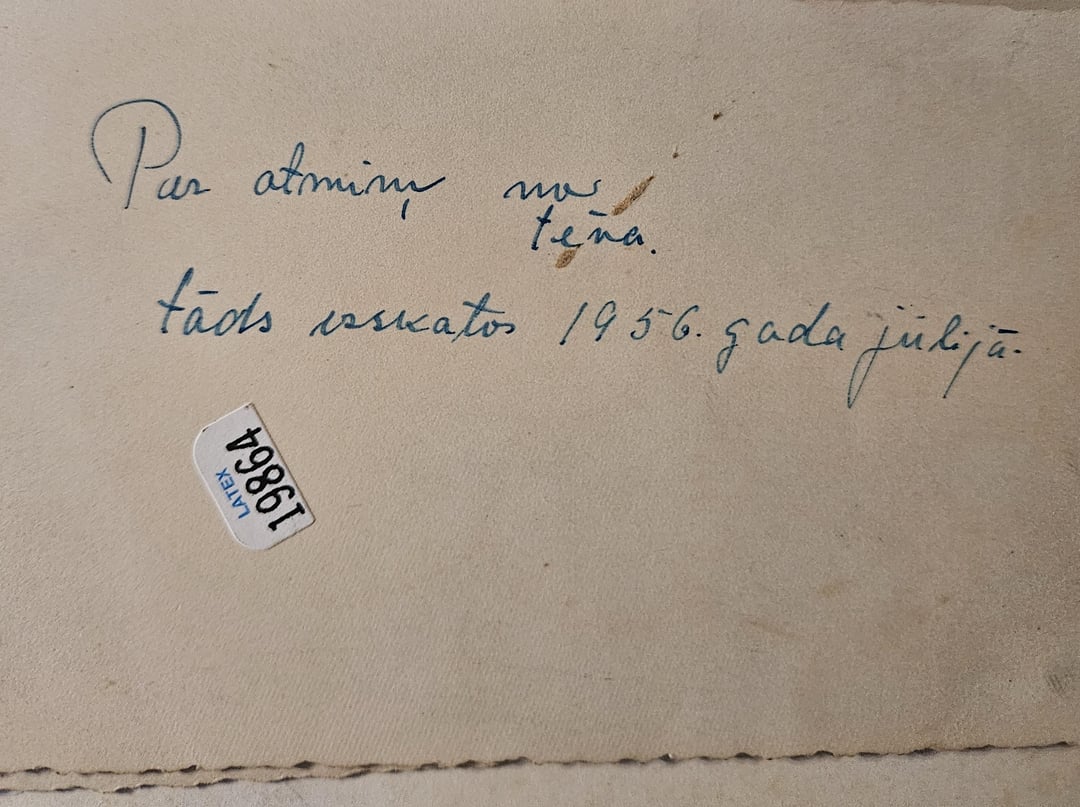 Par atmiņu no
tēva.
tāds isskatos 1956. gada jūlijā.
LATEX
19864